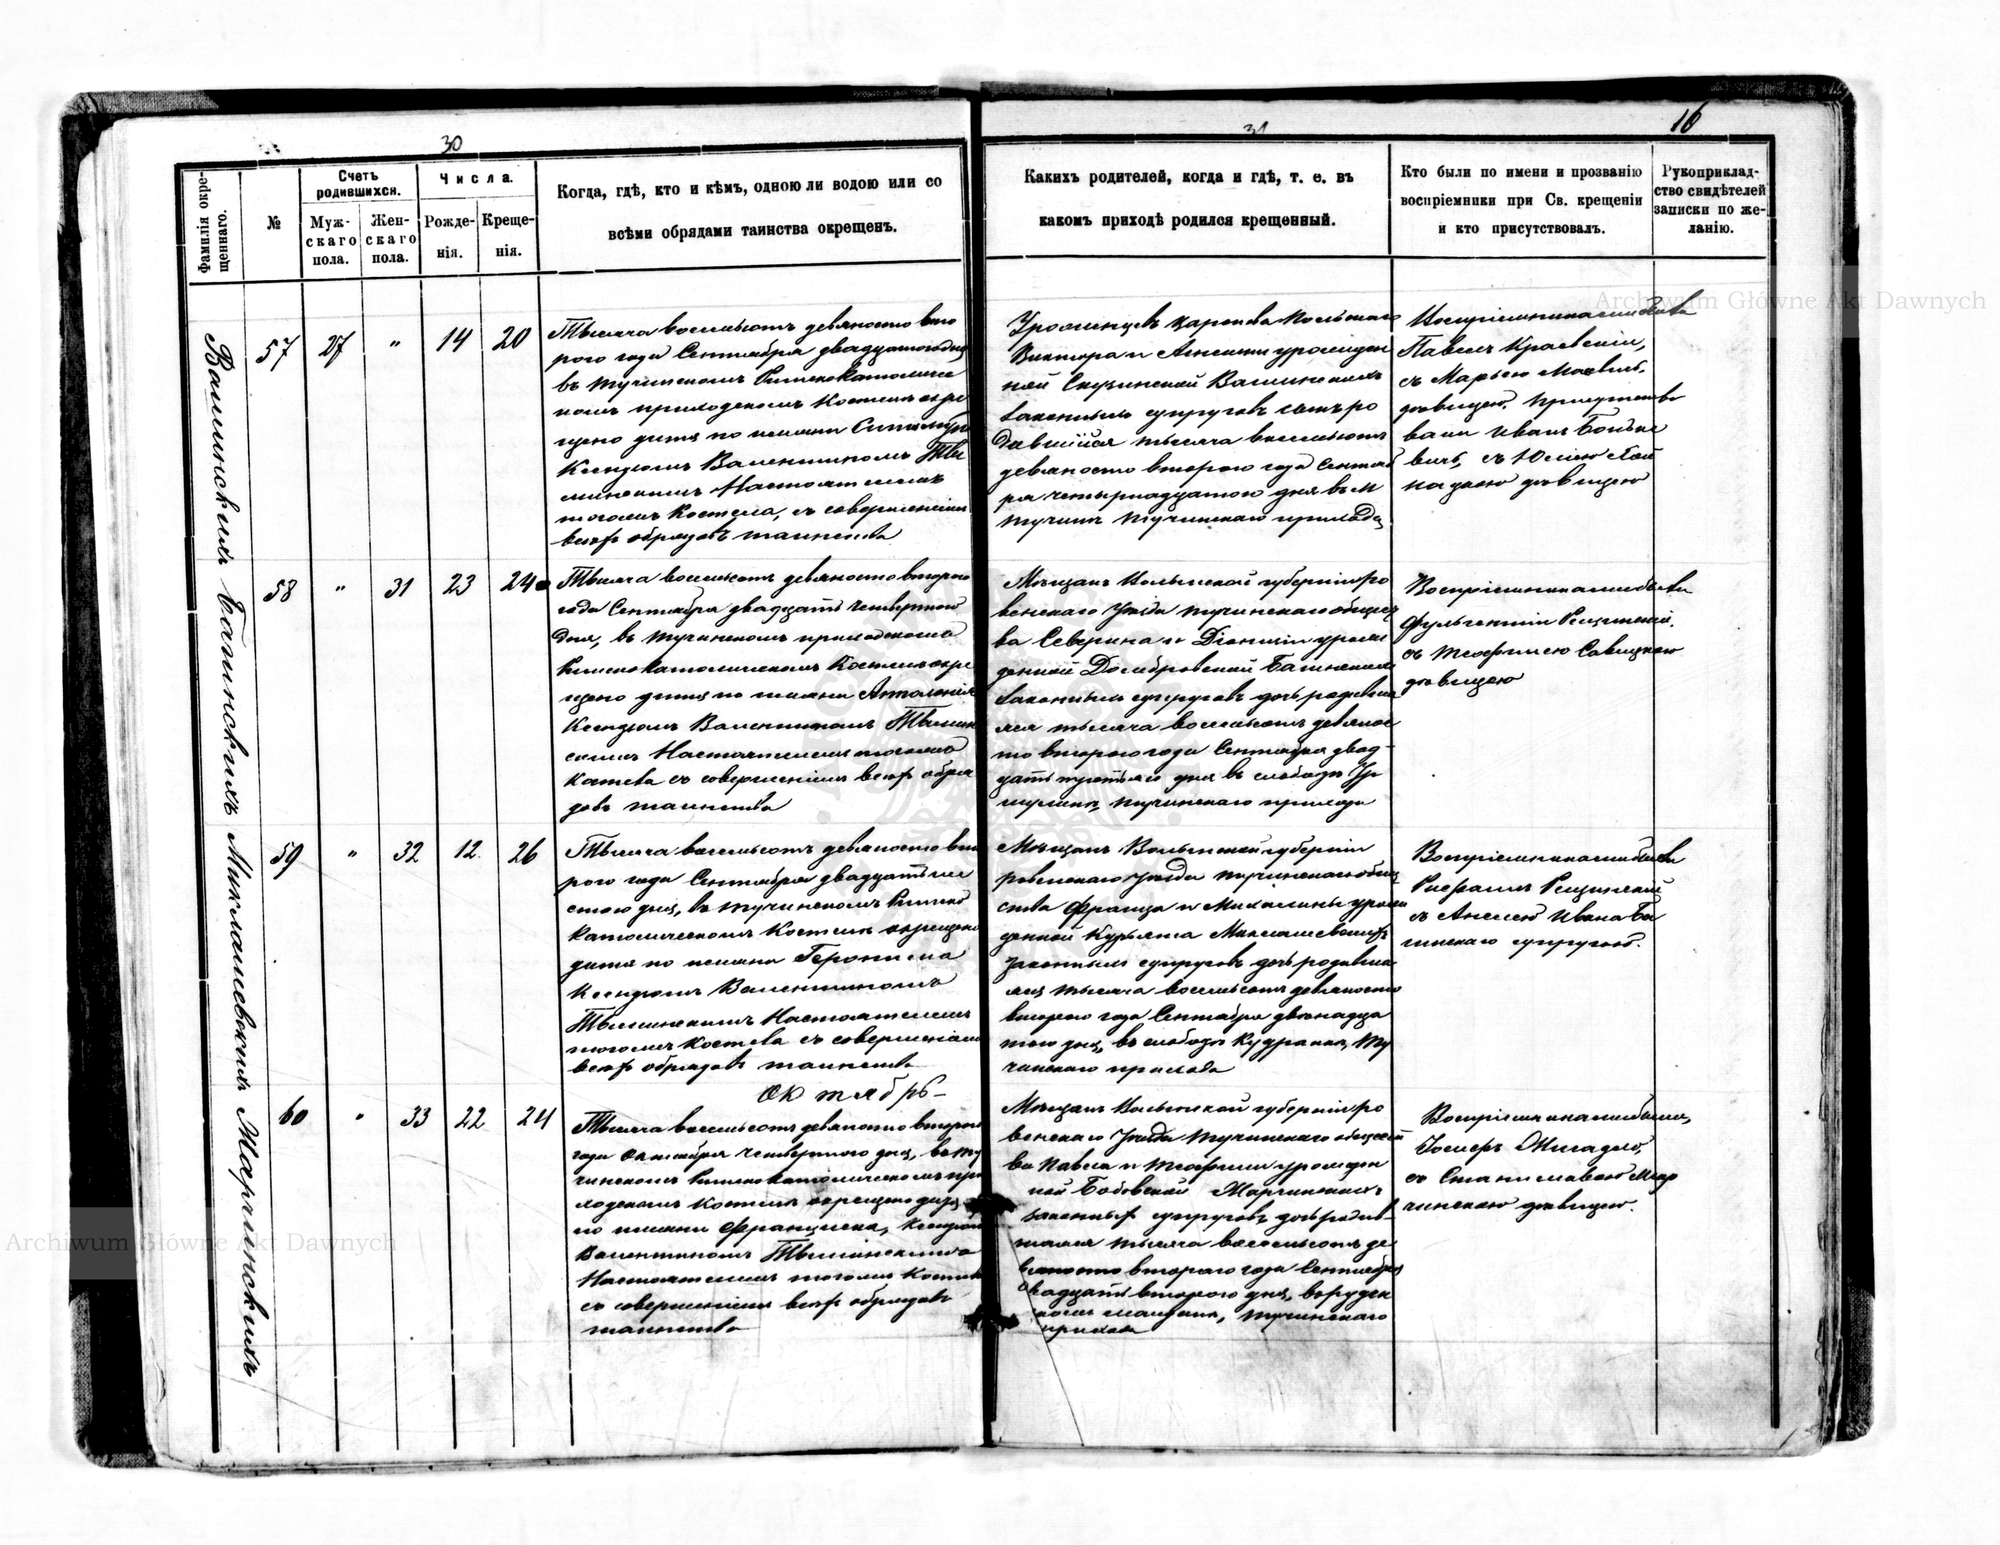 30
31
16
Фамилія окре-
щеннаго.
№
Счетъ
родившихся.
Муж-
скаго
пола.
Жен-
скаго
пола.
Числа.
Рожде-
нія.
Креще-
нія.
Когда, гдѣ, кто и кѣмъ, одною ли водою или со
всѣми обрядами таинства окрещенъ.
Какихъ родителей, когда и гдѣ, т. е. въ
какомъ приходѣ родился крещенный.
Кто были по имени и прозванію
воспріемники при Св. крещеніи
и кто присутствовалъ.
Рукоприклад-
ство свидѣтелей
записки по же-
ланію.
57 27 " 14 20
Тысяча восемьсотъ девяносто вто
рого года Сентября двадцатого дня
въ Тучинскомъ Римско Католиче
скомъ приходскомъ Костелѣ окре
щено дитя по имени
Ксендзомъ Валентиномъ
Настоятелемъ
тогожъ Костела, съ совершеніемъ
всѣхъ обрядовъ таинства
Уроженцевъ Царства Польскаго
Виктора и
ной Вашинскихъ
законныхъ супруговъ сынъ ро
дившійся тысяча восемьсотъ
девяносто второго года Сентяб
ря четырнадцатого дня въ м
Тучинѣ Тучинскаго прихода
Воспріемниками были
Павелъ Краевскій,
съ Марьею
дѣвицею. Присутство
вали Иванъ
вичъ, съ Юліею
дѣвицею
58 " 31 23 24
Тысяча восемьсотъ девяносто второго
года Сентября двадцать четвертого
дня, въ Тучинскомъ приходскомъ
Римско Католическомъ Костелѣ окре
щено дитя по имени Антонина
Ксендзомъ Валентиномъ
Настоятелемъ тогожъ
Костела съ совершеніемъ всѣхъ обря
довъ таинства
Мѣщанъ Волынской губерніи Ро
венскаго Уѣзда Тучинскаго общест
ва Северина и Діонизіи урож
денной Домбровской Багинскихъ
законныхъ супруговъ дочь родивша
яся тысяча восемьсотъ девянос
то второго года Сентября двад-
цать третьяго дня въ слободѣ
Тучинскаго прихода
Воспріемниками были
съ Теофилею Савицкою
дѣвицею
59 " 32 12 26
Тысяча восемьсотъ девяносто вто
рого года Сентября двадцать ше
стого дня, въ Тучинскомъ Римско
Католическомъ Костелѣ окрещено
дитя по имени Геронима
Ксендзомъ Валентиномъ
Настоятелемъ
тогожъ Костела съ совершеніемъ
всѣхъ обрядовъ таинства
Мѣщанъ Волынской губерніи
Ровенскаго Уѣзда Тучинскаго общ
ства Франца и Михалины урож
денной Миклашевскихъ
законныхъ супруговъ дочь родивша
яся тысяча восемьсотъ девяносто
второго года Сентября двѣнадца
того дня, въ слободѣ Кудранка, Ту
чинскаго прихода
Воспріемниками были
съ Анелею Ивана Ба
гинскаго супругою.
Октябрь
60 " 33 22 24
Тысяча восемьсотъ девяносто второго
года Октября четвертого дня, въ Ту
чинскомъ Римско Католическомъ при
ходскомъ Костелѣ окрещено дитя
по имени Франциска, Ксендзомъ
Валентиномъ
Настоятелемъ тогожъ Костела
съ совершеніемъ всѣхъ обрядовъ
таинства
Мѣщанъ Волынской губерніи Ро
венскаго Уѣзда Тучинскаго общест
ва Павла и Теофили урожден
ной Бобовской Марчинскихъ
законныхъ супруговъ дочь родив-
шаяся тысяча восемьсотъ де
вяносто второго года Сентября
двадцать второго дня,
Тучинскаго
прихода
Воспріемниками были,
съ Станиславою Мар
чинскою дѣвицею.
Вашинскихъ Багинскихъ Миклашевскихъ Марчинскихъ
Archiwum Główne Akt Dawnych
Archiwum Główne Akt Dawnych